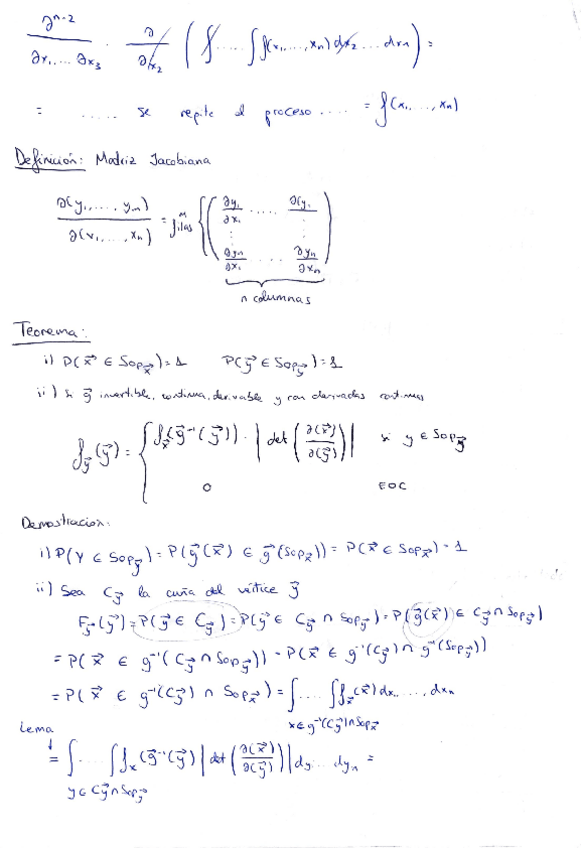 ∂ⁿ⁻²/(∂x₁....∂x₃) · ∂/∂x₂ ( ∫.....∫ f(x₁,...,xₙ) dx₂...dxₙ ) =
= ..... se repite el proceso .... = f(x₁,...,xₙ)
Definición: Matriz Jacobiana
∂(y₁,....,yₘ)/∂(x₁,...,xₙ) = m filas { ( ∂y₁/∂x₁ ..... ∂(y₁ / ⋮ ⋮ / ∂yₘ/∂x₁ ..... ∂yₘ/∂xₙ )
n columnas
Teorema:
i) P(x⃗ ∈ Sop x⃗) = 1 P(y⃗ ∈ Sop y⃗) = 1
ii) si g⃗ invertible, continua, derivable y con derivadas continuas
f y⃗(y⃗) = { f x⃗(g⃗⁻¹(y⃗)) · | det (∂(x⃗)/∂(y⃗)) | si y ∈ Sop y⃗
0 EOC
Demostracion:
i) P(Y ∈ Sop y⃗) = P(g⃗(x⃗) ∈ g⃗(Sop x⃗)) = P(x⃗ ∈ Sop x⃗) = 1
ii) Sea C y⃗ la cuña del vértice y⃗
F y⃗(y⃗) = P(y⃗ ∈ C y⃗) = P(y⃗ ∈ C y⃗ ∩ Sop y⃗) = P(g⃗(x⃗) ∈ C y⃗ ∩ Sop y⃗)
= P(x⃗ ∈ g⁻¹(C y⃗ ∩ Sop y⃗)) = P(x⃗ ∈ g⁻¹(C y⃗) ∩ g⁻¹(Sop y⃗))
= P(x⃗ ∈ g⁻¹(C y⃗) ∩ Sop x⃗) = ∫.....∫ f x⃗(x⃗) dx₁....., dxₙ
x ∈ g⁻¹(C y⃗) ∩ Sop x⃗
Lema
↓
= ∫.....∫ fₓ(g⃗⁻¹(y⃗)) | det (∂(x⃗)/∂(y⃗)) | dy₁... dyₙ =
y ∈ C y⃗ ∩ Sop y⃗